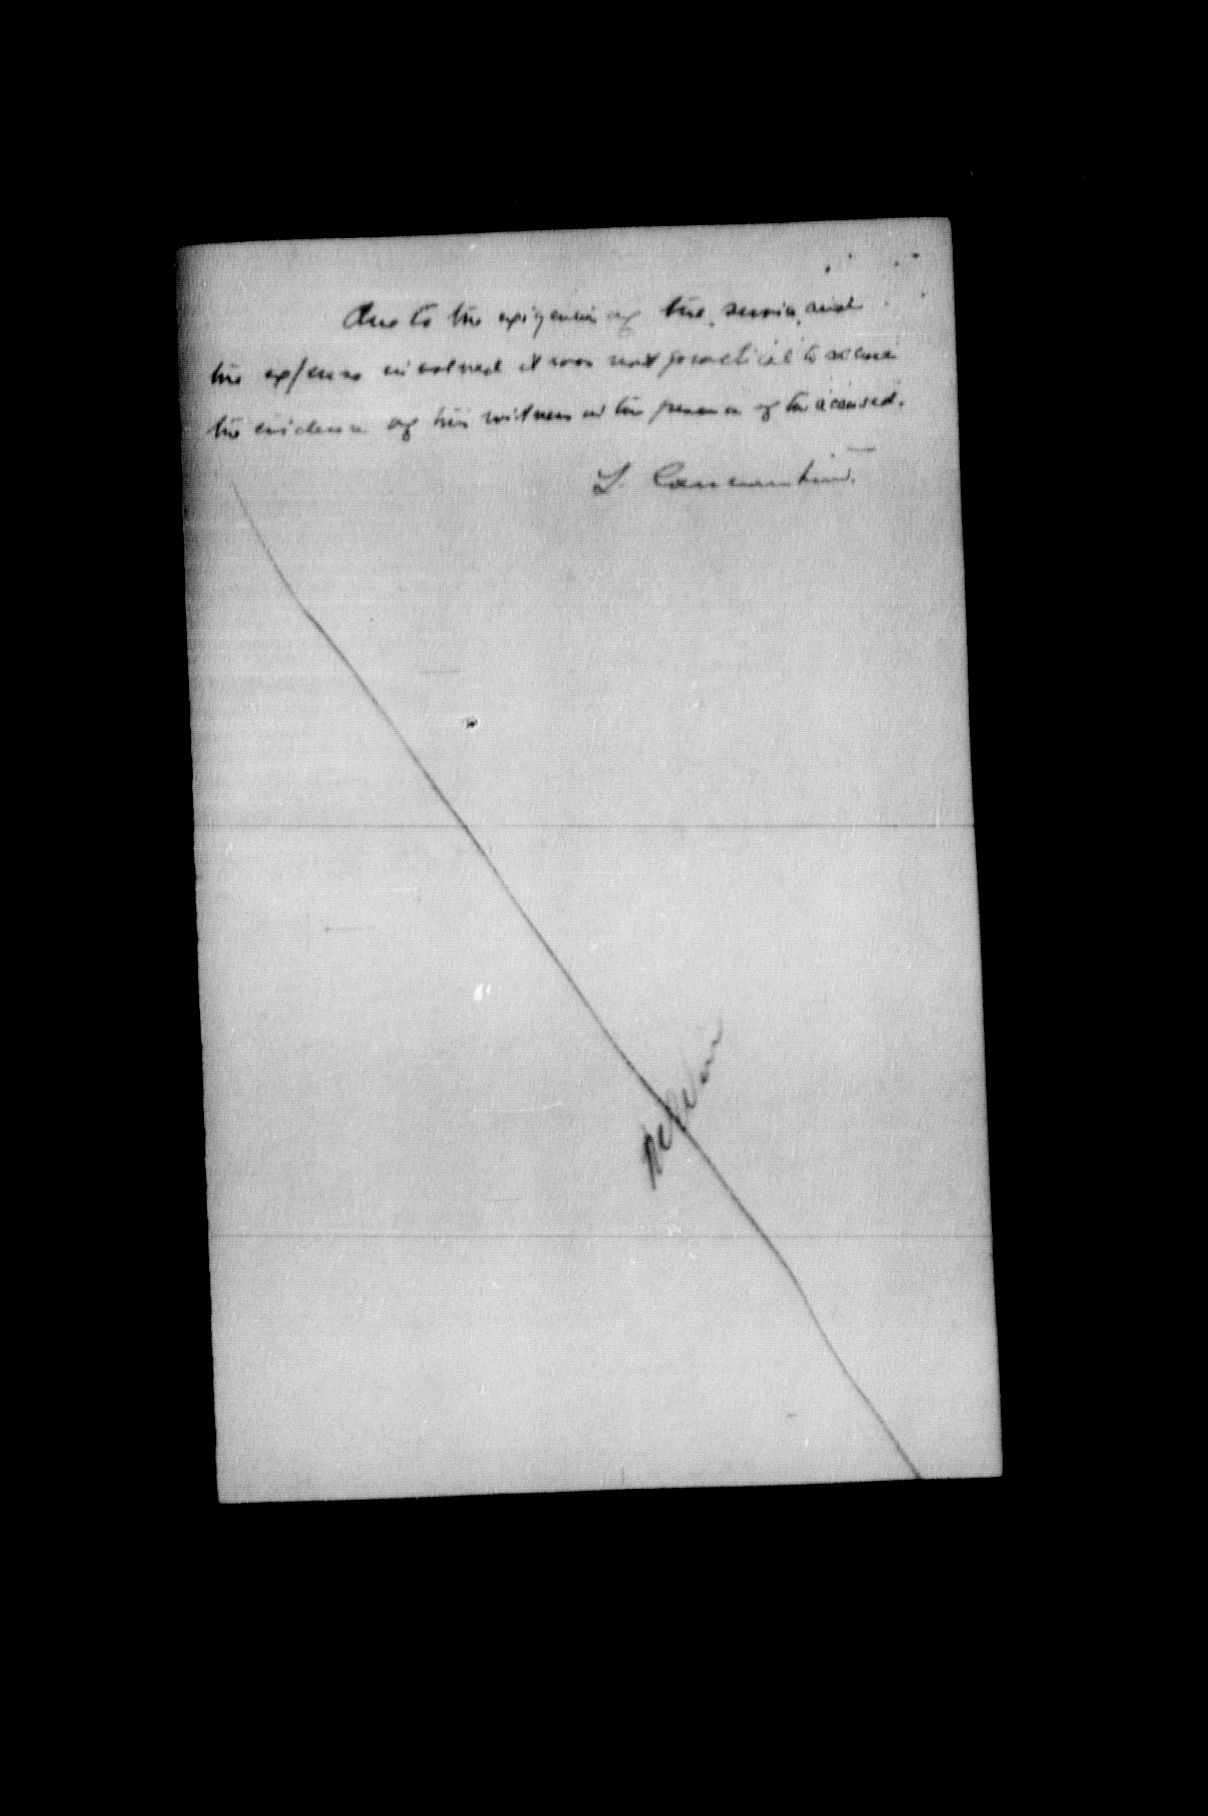 Due to the exigencies of the service, and
the expense involved it was not practical to secure
the evidence of this witness in the presence of the accused.